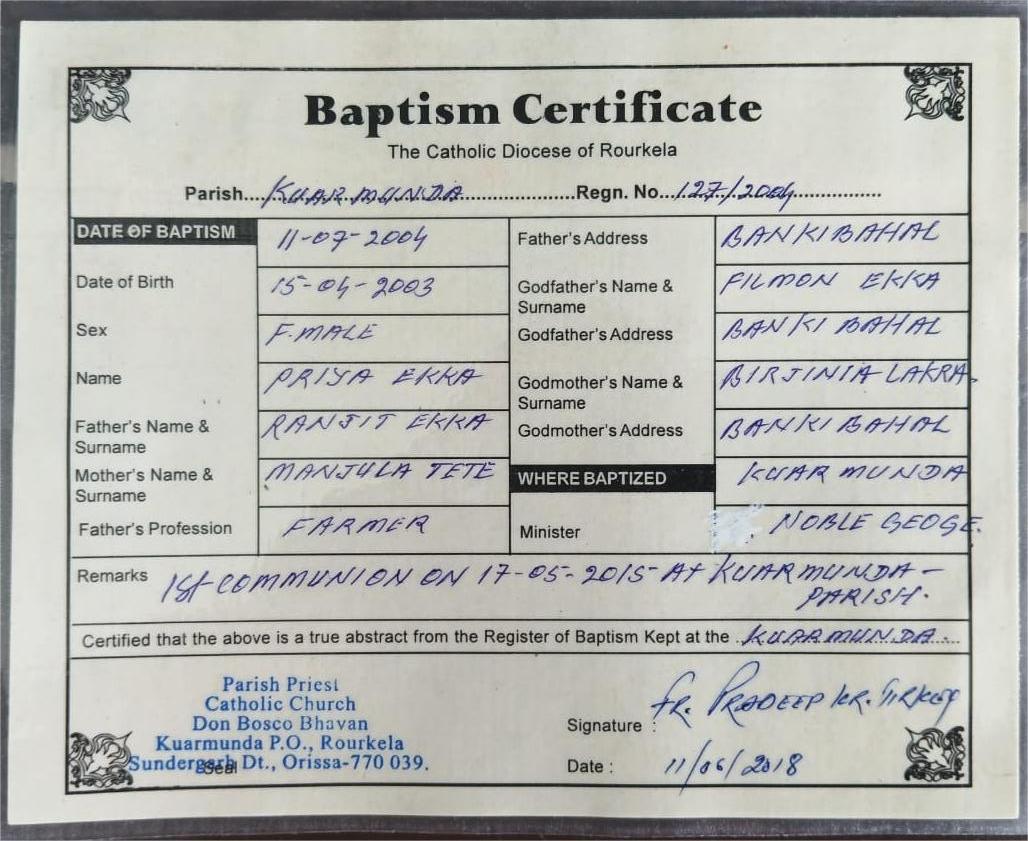 Baptism Certificate
The Catholic Diocese of Rourkela
Parish....KUAR MUNDA....Regn. No...127/2004....
DATE OF BAPTISM 11-07-2004
Date of Birth 15-04-2003
Sex F.MALE
Name PRIYA EKKA
Father's Name & Surname RANJIT EKKA
Mother's Name & Surname MANJULA TETE
Father's Profession FARMER
Father's Address BANKIBAHAL
Godfather's Name & Surname FILMON EKKA
Godfather's Address BANKI BAHAL
Godmother's Name & Surname BIRJINIA LAKRA.
Godmother's Address BANKI BAHAL
WHERE BAPTIZED KUAR MUNDA
Minister NOBLE GEOGE.
Remarks 1st COMMUNION ON 17-05-2015 At KUARMUNDA-
PARISH.
Certified that the above is a true abstract from the Register of Baptism Kept at the ..KUARMUNDA...
Parish Priest
Catholic Church
Don Bosco Bhavan
Kuarmunda P.O., Rourkela
Sundergarh Dt., Orissa-770 039.
Seal
Signature : Fr. PRADEEP KR. TIRKEY
Date : 11/06/2018